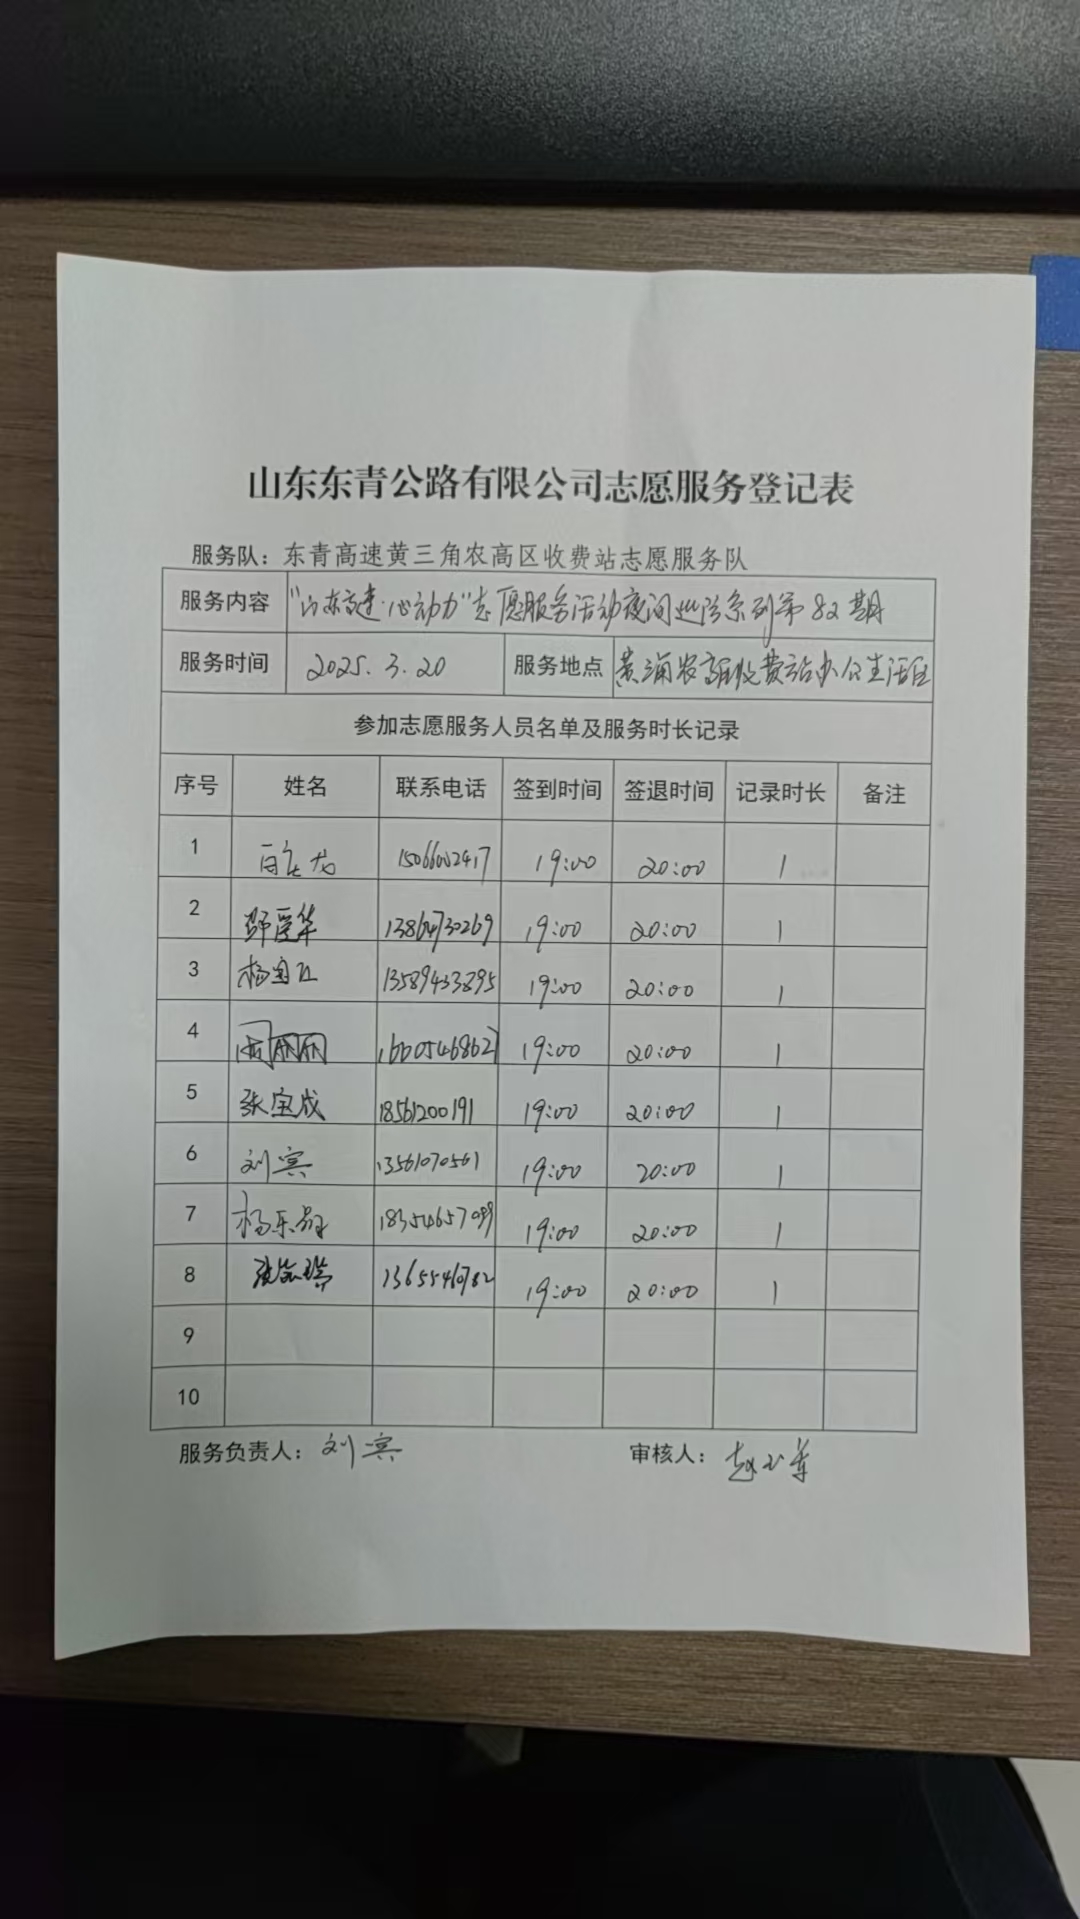 山东东青公路有限公司志愿服务登记表
服务队：东青高速黄三角农高区收费站志愿服务队
服务内容 "山东高速·心动力"志愿服务活动夜间巡防系列第82期
服务时间 2025.3.20 服务地点 黄三角农高区收费站办公生活区
参加志愿服务人员名单及服务时长记录
序号 姓名 联系电话 签到时间 签退时间 记录时长 备注
1 19:00 20:00 1
2 华 13864730269 19:00 20:00 1
3 杨 13589433895 19:00 20:00 1
4 周丽丽 16605468627 19:00 20:00 1
5 张宝成 18561200191 19:00 20:00 1
6 刘宾 13561070561 19:00 20:00 1
7 杨乐 18354657099 19:00 20:00 1
8 13655460782 19:00 20:00 1
9
10
服务负责人：刘宾 审核人：赵